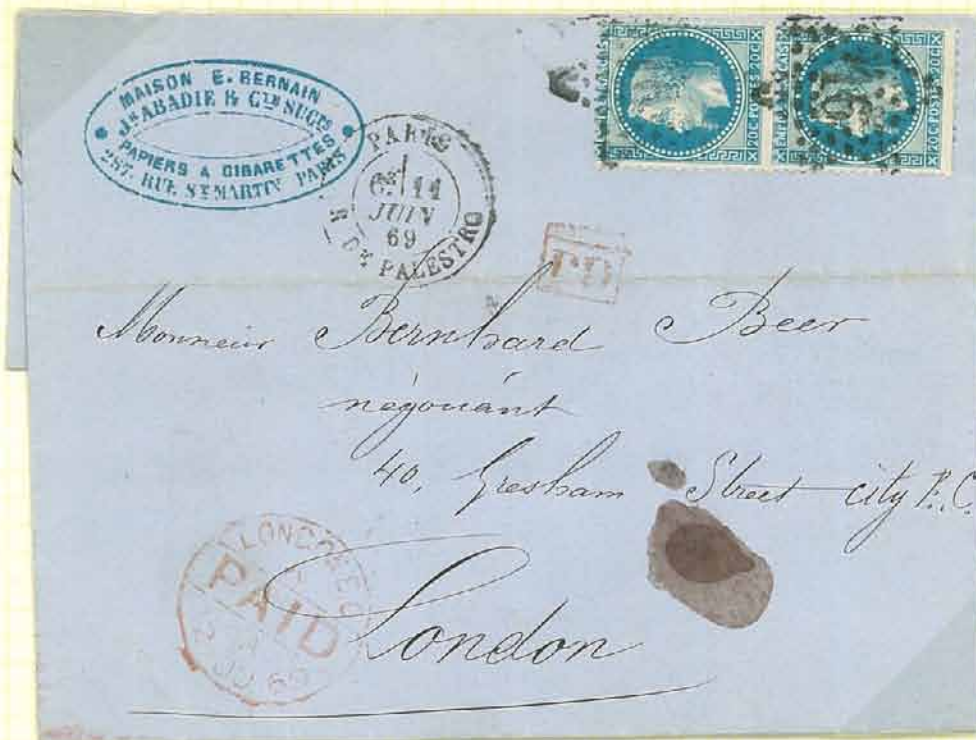 MAISON E. BERNAIN
Jh ABADIE & Cie SUCrs
PAPIERS A CIGARETTES
287. RUE St MARTIN PARIS
PARIS
6e 11
JUIN
69
R. De PALESTRO
20C POSTES 20C
20C POSTES 20C
PD
Monsieur Bernhard Beer
négociant
40, Gresham Street city E.C.
London
LONDON E.C
PAID
JU 69